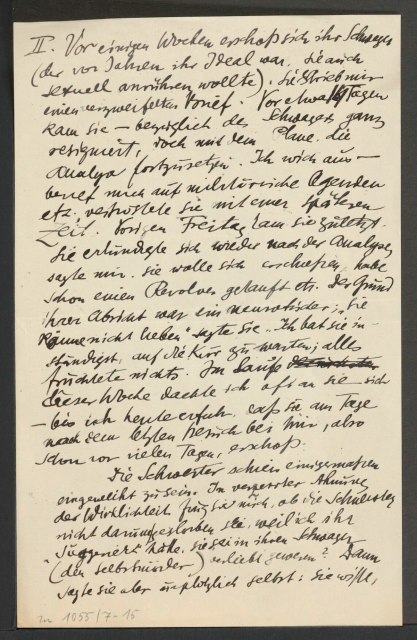 II. Vor einigen Wochen erschoß sich ihr Schwager
(der vor Jahren ihr Ideal war, sie auch
sexuell anrühren wollte), sie schrieb mir
einen verzweifelten Brief. Vor etwa 14 Tagen
kam sie – bezüglich des Schwagers ganz
resigniert, doch mit dem Plane, die
Analyse fortzusetzen. Ich wich aus –
berief mich auf militärische Agenden
etz., vertröstete sie mit einer späteren
Zeit. Vorigen Freitag kam sie zuletzt.
Sie erkundigte sich wieder nach der Analyse,
sagte mir, sie wolle sich erschießen, habe
schon einen Revolver gekauft etc. Der Grund
ihrer Absicht war ein neurotischer; „Sie
könne nicht lieben" sagte sie. Ich bat sie in-
ständigst, auf die Kur zu warten; alles
fruchtete nichts. Im Laufe
dieser Woche dachte ich oft an sie
– bis ich heute erfuhr, daß sie am Tage
nach dem letzten Besuch bei mir, also
schon vor vielen Tagen, erschoß.
Die Schwester schien einigermaßen
eingeweiht zu sein. In verzerrter Ahnung
der Wirklichkeit frug sie mich, ob die Schwester
nicht darum gestorben sei, weil ich ihr
„suggeriert" hätte, sie sei in ihren Schwager
(den Selbstmörder) verliebt gewesen? Dann
sagte sie aber urplötzlich selbst: sie wisse,
1055/7-15